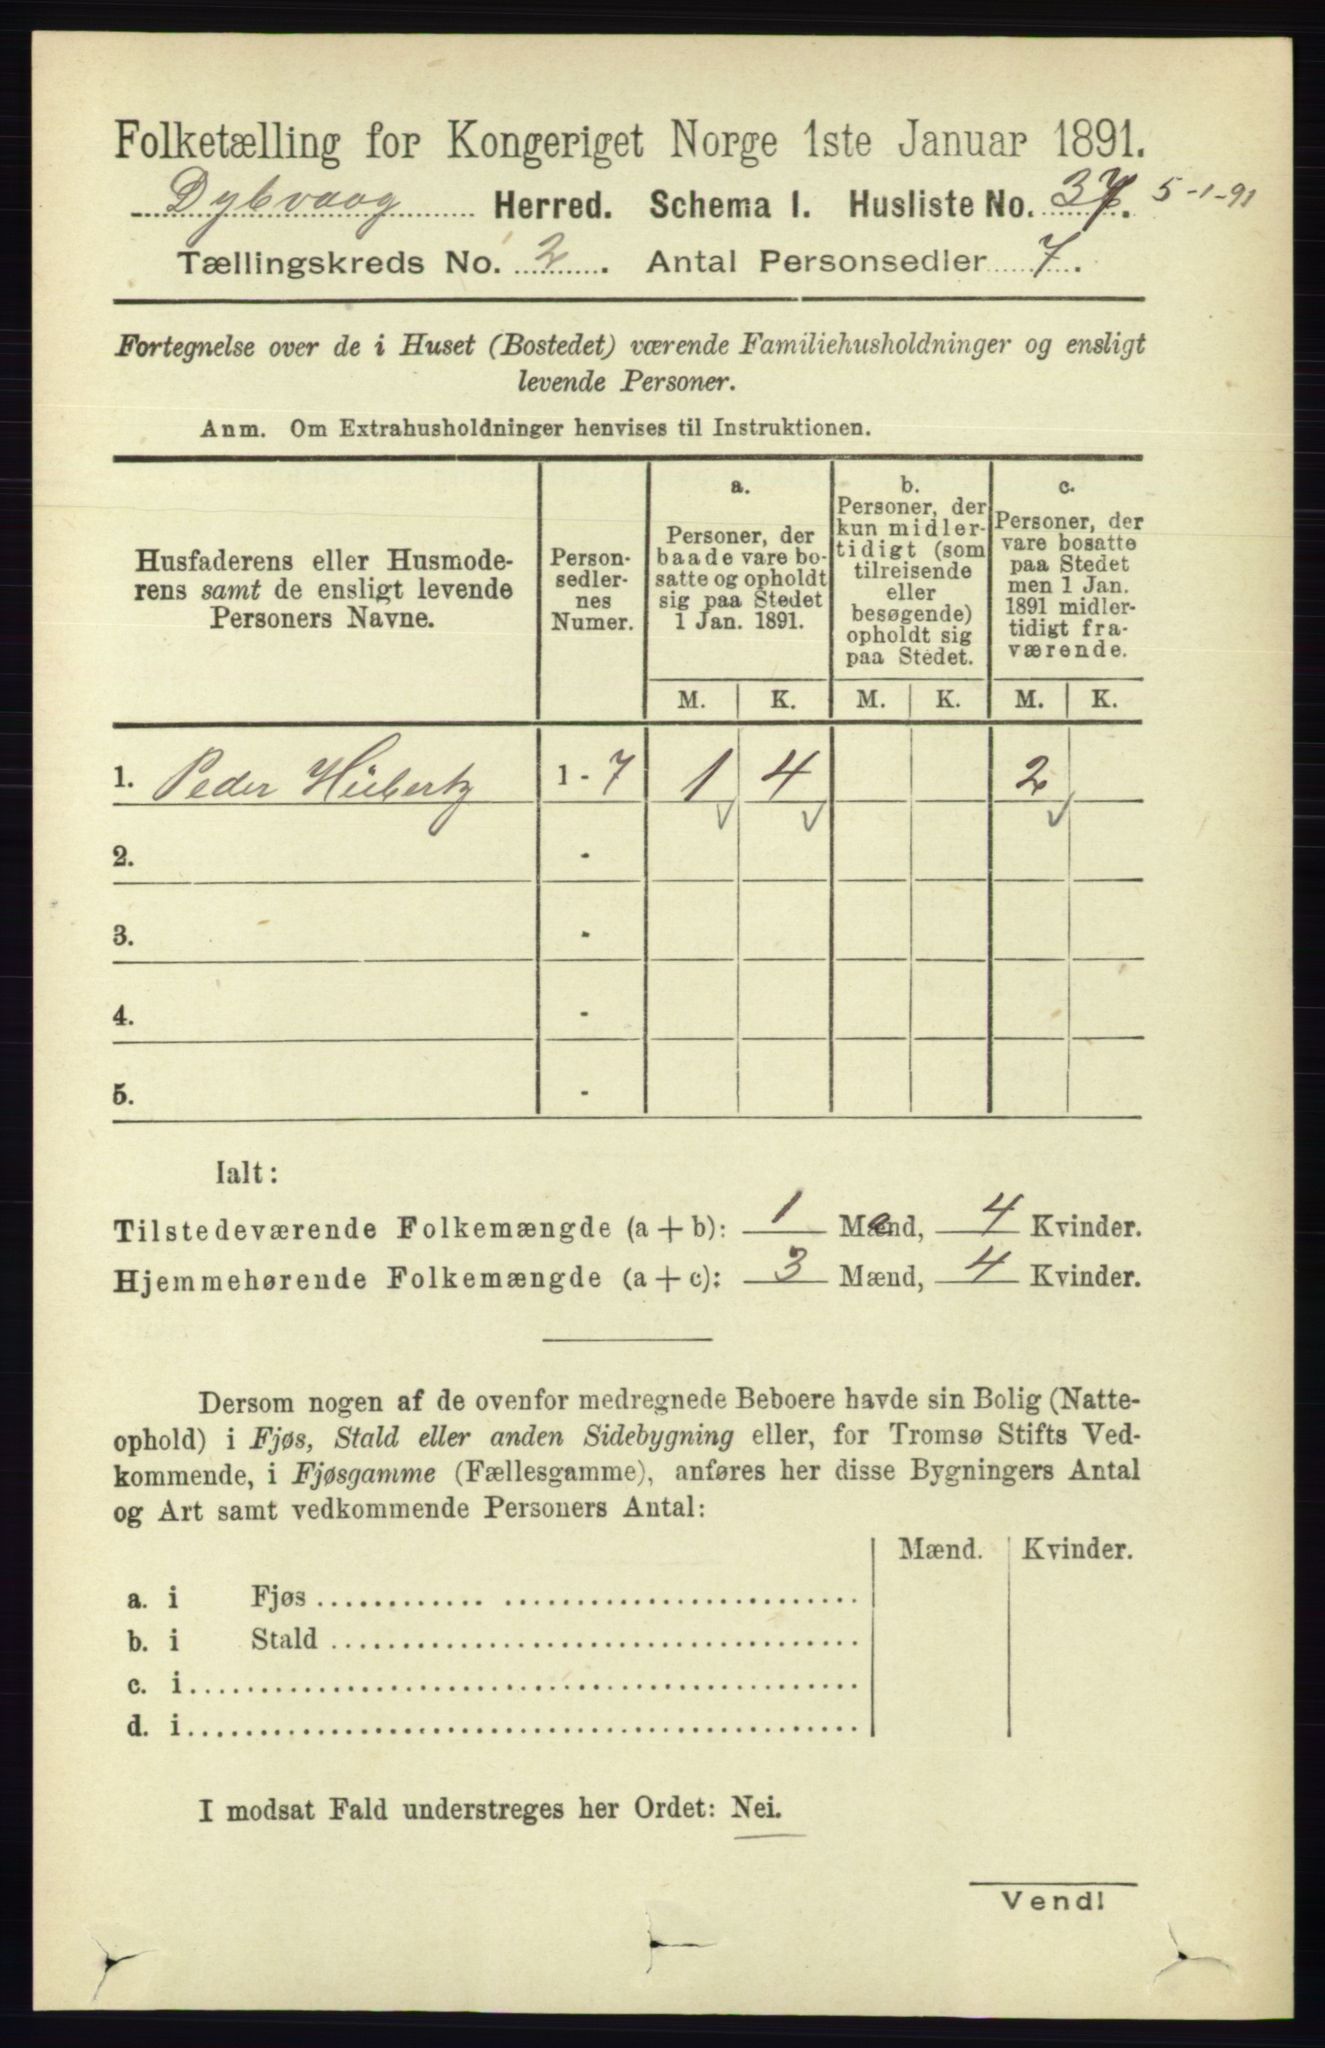 Folketælling for Kongeriget Norge 1ste Januar 1891.
Dybvaag Herred. Schema 1. Husliste No. 37. 5-1-91
Tællingskreds No. 2. Antal Personsedler 7.
Fortegnelse over de i Huset (Bostedet) værende Familiehusholdninger og ensligt
levende Personer.
Anm. Om Extrahusholdninger henvises til Instruktionen.
Husfaderens eller Husmode-
rens samt de ensligt levende
Personers Navne.
Person-
sedler-
nes
Numer.
a.
Personer, der
baade vare bo-
satte og opholdt
sig paa Stedet
1 Jan. 1891.
b.
Personer, der
kun midler-
tidigt (som
tilreisende
eller
besøgende)
opholdt sig
paa Stedet.
c.
Personer, der
vare bosatte
paa Stedet
men 1 Jan.
1891 midler-
tidigt fra-
værende.
M. K. M. K. M. K.
1. Peder Hübertz 1 - 7 1 4 2
2. -
3. -
4. -
5. -
Ialt:
Tilstedeværende Folkemængde (a + b): 1 Mænd, 4 Kvinder.
Hjemmehørende Folkemængde (a + c): 3 Mænd, 4 Kvinder.
Dersom nogen af de ovenfor medregnede Beboere havde sin Bolig (Natte-
ophold) i Fjøs, Stald eller anden Sidebygning eller, for Tromsø Stifts Ved-
kommende, i Fjøsgamme (Fællesgamme), anføres her disse Bygningers Antal
og Art samt vedkommende Personers Antal:
Mænd. Kvinder.
a. i Fjøs
b. i Stald
c. i
d. i
I modsat Fald understreges her Ordet: Nei.
Vend!